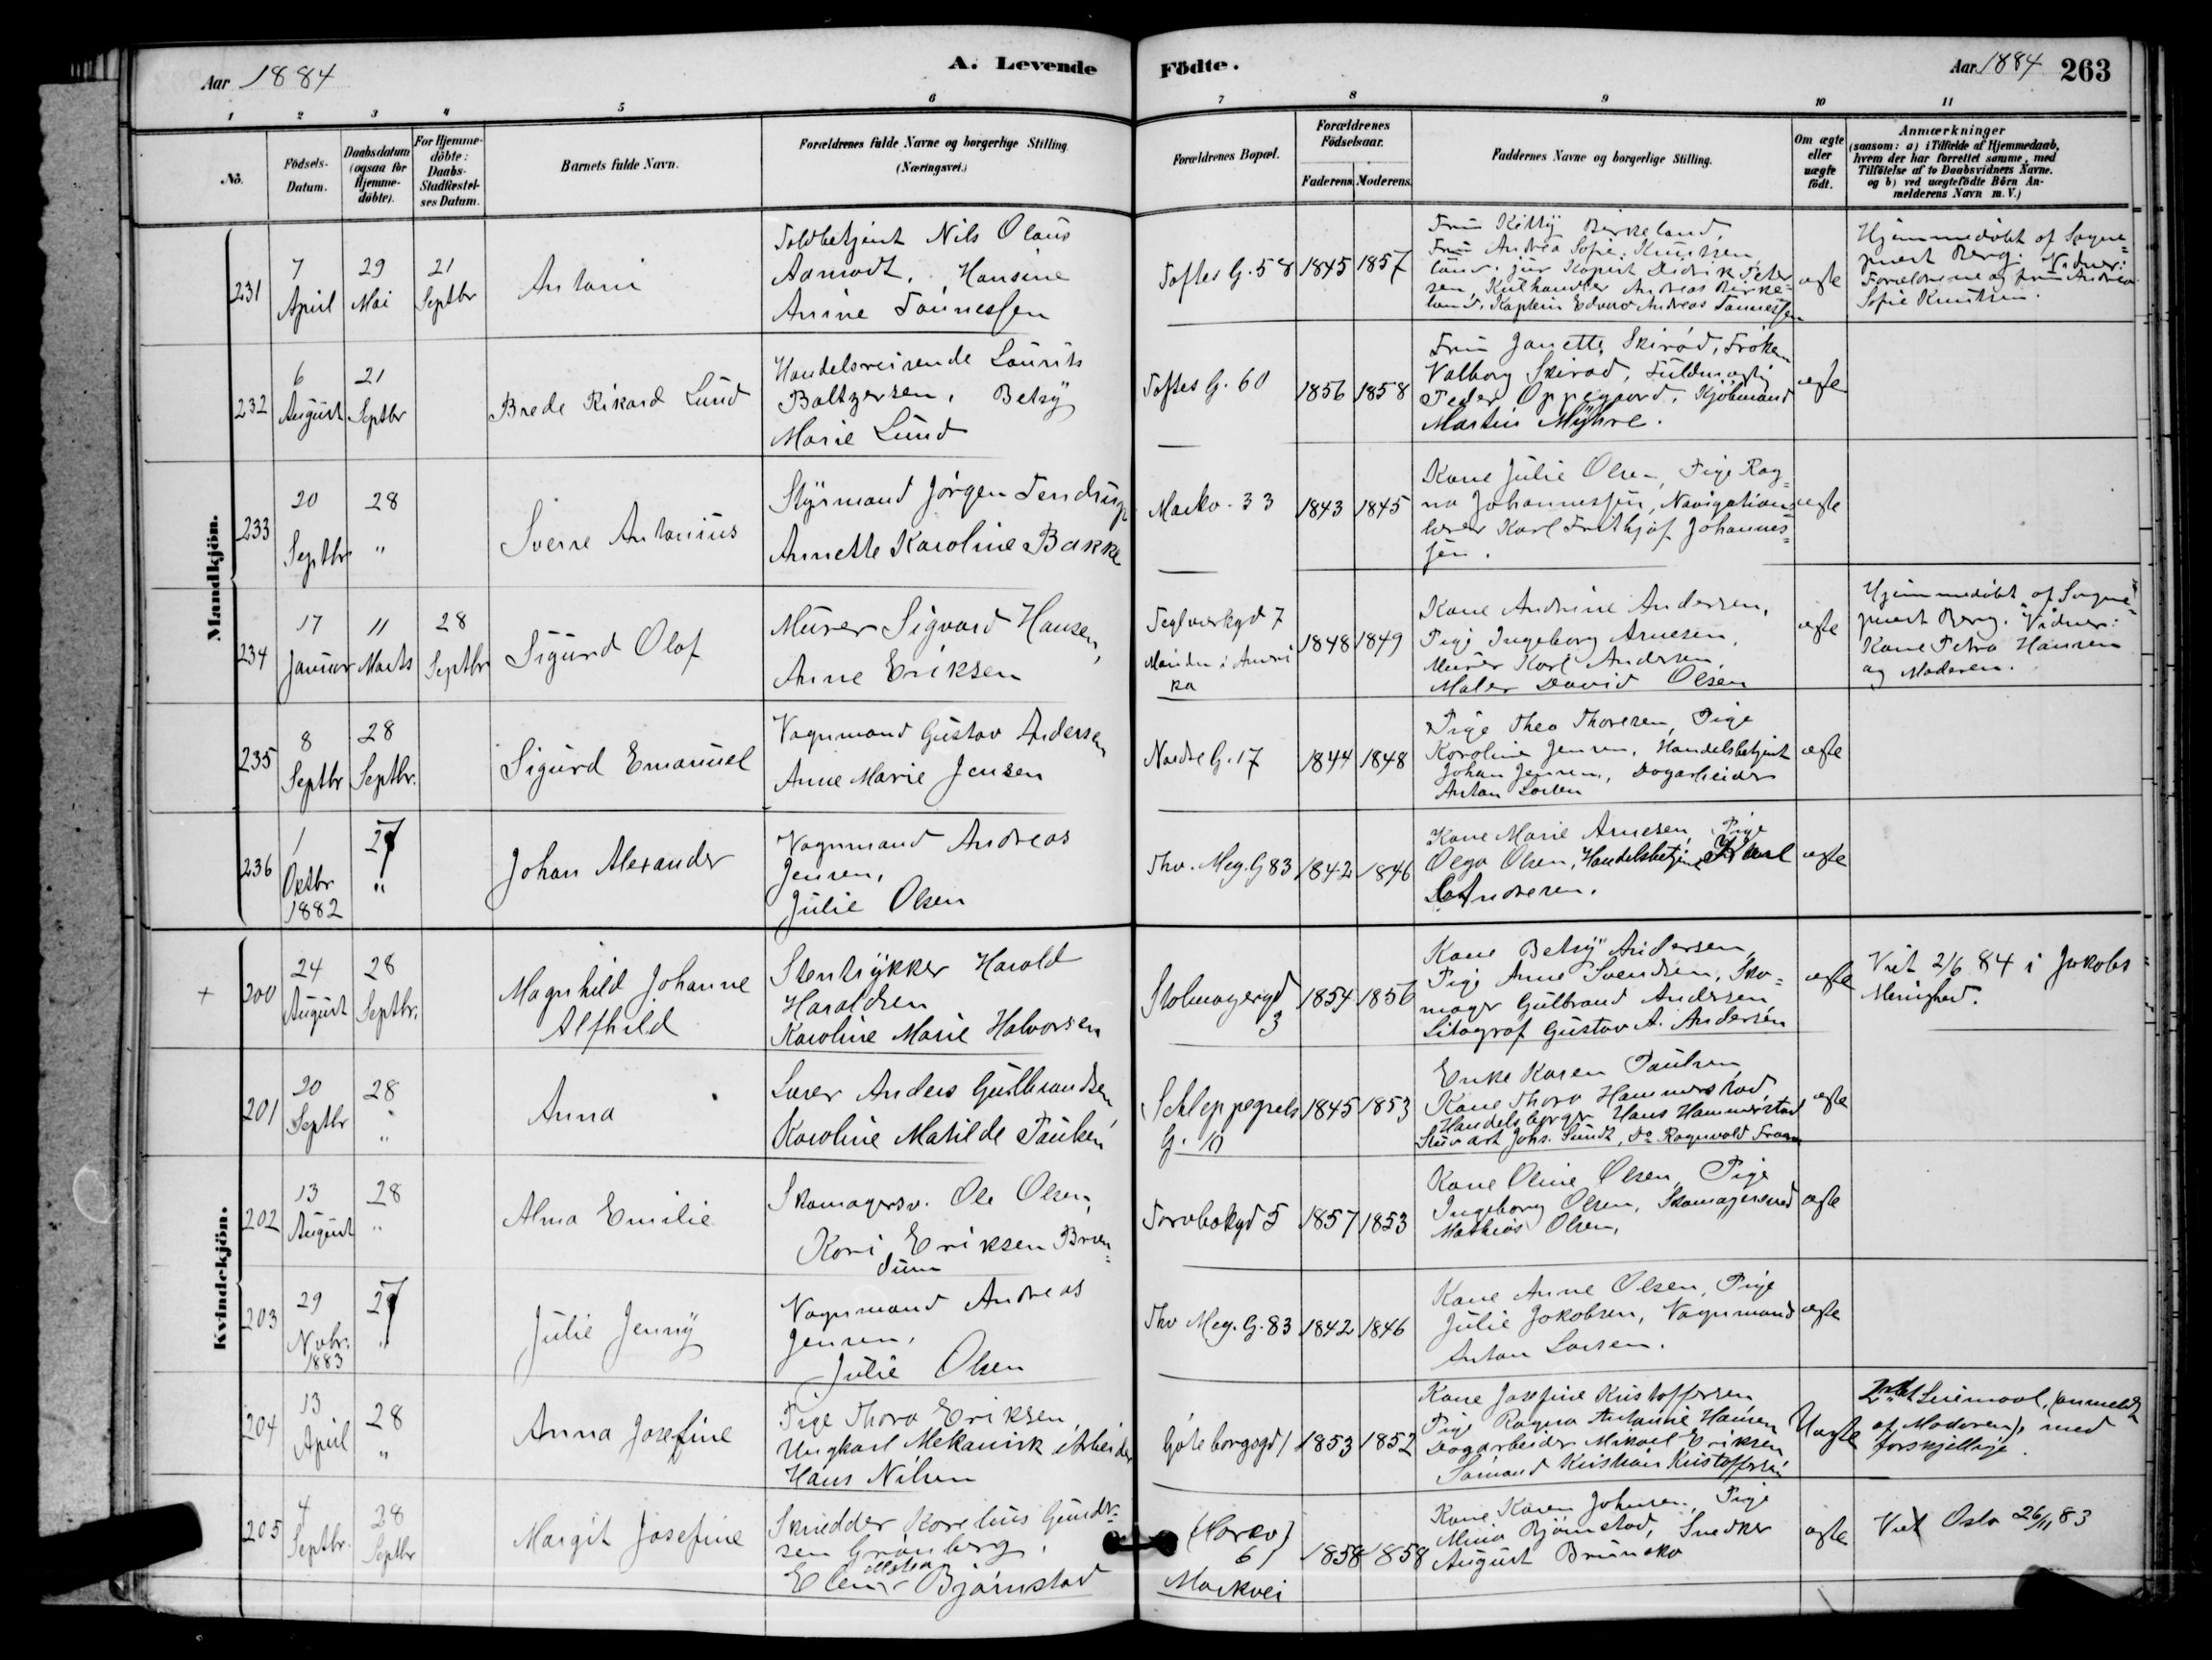 Aar 1884
A. Levende
Födte.
Aar 1884
263
1
2
3
4
5
6
7
8
9
10
11
No.
Födsels-
Datum.
Daabsdatum
(ogsaa for
Hjemme-
döbte).
For Hjemme-
döbte:
Daabs-
Stadfæstel-
ses Datum.
Barnets fulde Navn.
Forældrenes fulde Navne og borgerlige Stilling
(Næringsvei.)
Forældrenes Bopæl.
Forældrenes
Födselsaar.
Faderens
Moderens.
Faddernes Navne og borgerlige Stilling.
Om ægte
eller
uægte
födt.
Anmærkninger
(saasom: a) i Tilfælde af Hjemmedaab,
hvem der har forrettet samme, med
Tilföielse af to Daabsvidners Navne.
og b) ved uægtefödte Börn An-
melderens Navn m. V.)
Mandkjön.
231
7
April
29
Mai
21
Septbr
Antoni
Toldbetjent Nils Olaus
Aamodt, Hansine
Anine Tönnessen
Toftes G. 58
1845
1857
Fru Kitty Birkeland,
Fru Andrea Sofie Knutsen,
Didrik Peter
sen, Kulhandler Andreas Birke-
land, Kaptein Edvard Andreas Tønnessen
ægte
Hjemmedøbt af Sogne-
prest Berg. Vidner:
Forældrene og fru Andrea
Sofie Knutsen.
232
6
August
21
Septbr
Brede Rikard Lund
Handelsreisende Laurits
Baltzersen, Betsy
Marie Lund
Toftes G. 60
1856
1858
Fru Janette Skirød, Frøken
Valborg Skirød, Fuldmægtig
Peder Oppegaard, Kjøbmand
Martin Myhre.
ægte
233
20
Septbr
28
"
Sverre Antonius
Styrmand Jørgen Tendrup
Annette Karoline Bakke
Markv. 33
1843
1845
Kone Julie Olsen, Pige Rag-
na Johannessen, Navigations
lærer Karl Frithjof Johannes-
sen.
ægte
234
17
Januar
11
Marts
28
Septbr
Sigurd Olaf
Murer Sigvard Hansen,
Anne Eriksen
Teglverkgd 7
Manden i Ameri
ka
1848
1849
Kone Andrine Andersen,
Pige Ingeborg Arnesen,
Murer Karl Andersen,
Maler David Olsen
ægte
Hjemmedøbt af Sogne-
prest Berg. Vidner:
Kone Petra Hansen
og Moderen.
235
8
Septbr
28
Septbr.
Sigurd Emanuel
Vognmand Gustav Andersen
Anne Marie Jensen
Nordre G. 17
1844
1848
Pige Thea Thoresen, Pige
Karoline Jensen, Handelsbetjent
Johan Jensen, Dagarbeider
Anton Larsen
ægte
236
1
Oktbr
1882
27
"
Johan Alexander
Vognmand Andreas
Jensen,
Julie Olsen
Thv. Meg. G 83
1842
1846
Kone Marie Arnesen, Pige
Olga Olsen, Handelsbetjent Karl
Andresen.
ægte
Kvindekjön.
+
200
24
August
28
Septbr.
Magnhild Johanne
Alfhild
Stentrykker Harald
Haraldsen
Karoline Marie Halvorsen
Stolmagergd
3
1854
1856
Kone Betsy Andersen,
Pige Anne Svendsen, Sko-
mager Gulbrand Andersen
Litograf Gustav A. Andersen
ægte
Viet 2/6 84 i Jakobs
Menighed.
201
20
Septbr
28
"
Anna
Lærer Anders Gulbrandsen
Karoline Matilde Paulsen
Schleppegrels
G. 10
1845
1853
Enke Karen Paulsen
Kone Thora Hammerstad,
Handelsborger Hans Hammerstad
Stuvart Johs. Sundt, Do Ragnvald Fraas
ægte
202
13
August
28
"
Alma Emilie
Skomagersv. Ole Olsen,
Kari Eriksen Bræn-
dum
Torvbakgd 5
1857
1853
Kone Oline Olsen, Pige
Ingeborg Olsen, Skomagersvend
Mathias Olsen,
ægte
203
29
Novbr.
1883
27
"
Julie Jenny
Vognmand Andreas
Jensen,
Julie Olsen
Thv Meg. G. 83
1842
1846
Kone Anne Olsen, Pige
Julie Jakobsen, Vognmand
Anton Larsen.
ægte
204
13
April
28
"
Anna Josefine
Pige Thora Eriksen,
Ungkarl Mekanisk Arbeider
Hans Nilsen
Göteborgsgd 1
1853
1852
Kone Josefine Kristoffersen
Pige Ragna Antonie Hansen
Dagarbeider Mikael Eriksen
Sømand Kristian Kristoffersen
Uægte
2det Leiermaal, (anmeldt
af Moderen), med
forskjellige.
205
4
Septbr.
28
Septbr
Margit Josefine
Skrædder Kornelius Gunder-
sen Grønberg.
Elen Maria Bjørnstad
(Markv)
61
Markvei
1858
1858
Kone Karen Johnsen, Pige
Mina Bjørnstad, Snedker
August Brunsko
ægte
Viet Oslo 26/11 83